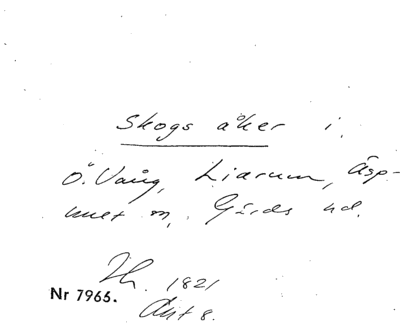 Skogs åker i.
Ö. Vång, Liarum, Äsp-
huet m, Gärds hd.
Th. 1821
Nr 7965.
Akt 8.